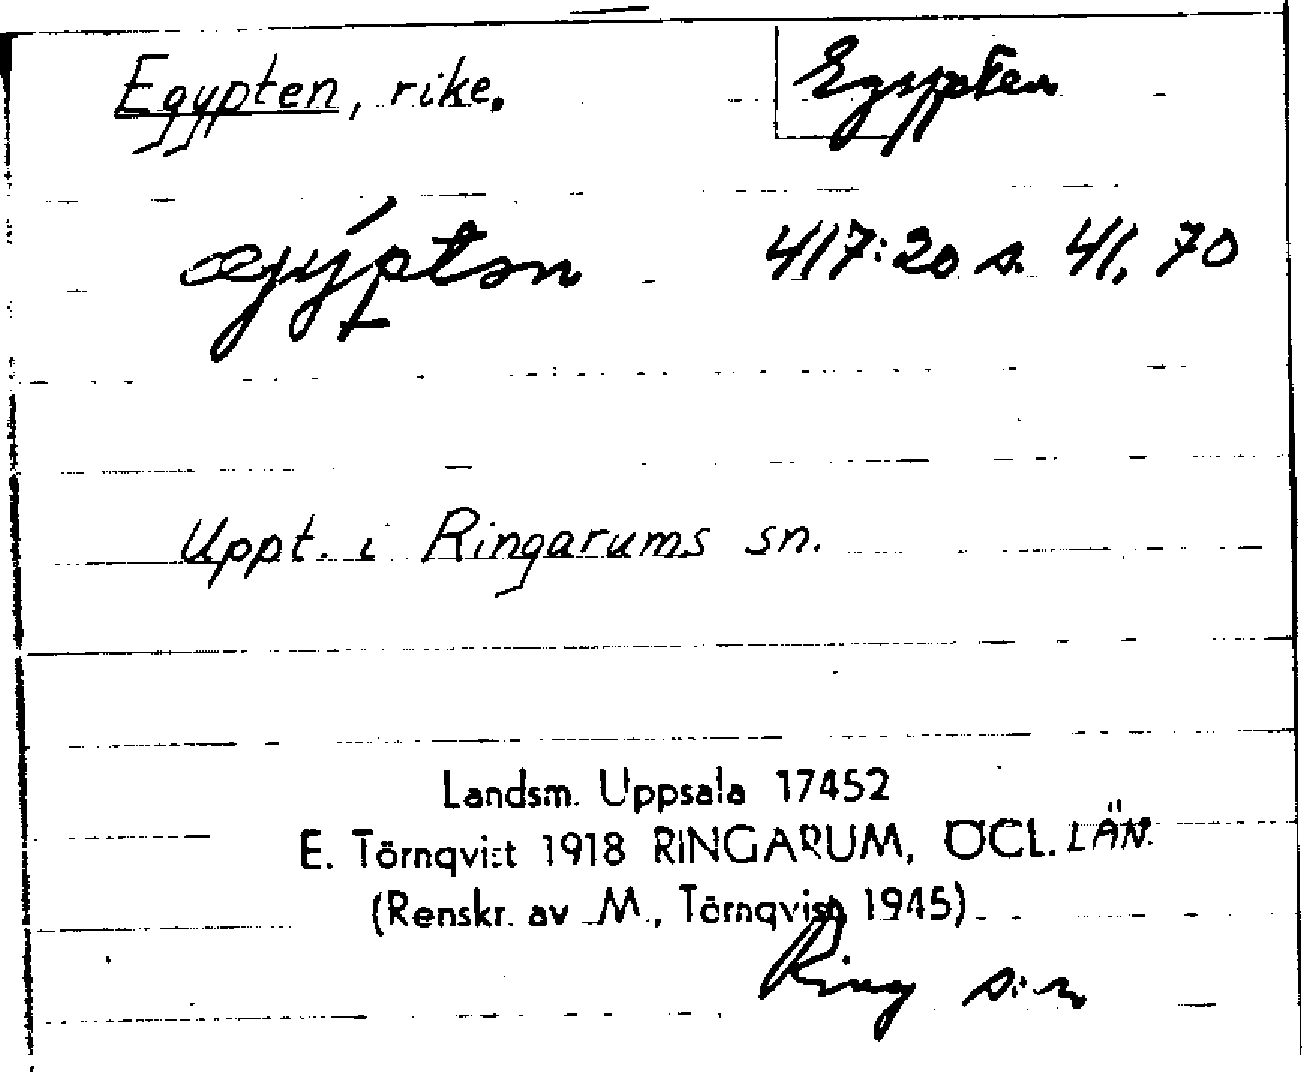 Egypten, rike.
Egypten
ægýptən 417:20 s. 41, 70
Uppt. i Ringarums sn.
Landsm. Uppsala 17452
E. Törnqvist 1918 RINGARUM, ÖGL. LÄN.
(Renskr. av M., Törnqvist 1945)
Ring s:n